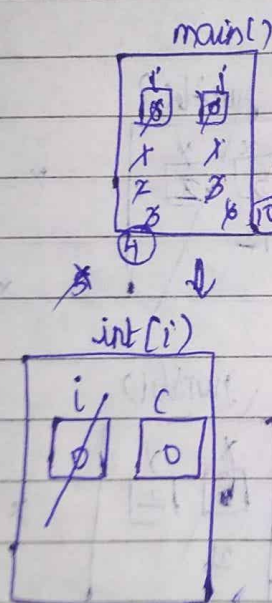 main()
i j
0 0
1 1
2 3
3 6 10
4
int(i)
i c
0 0